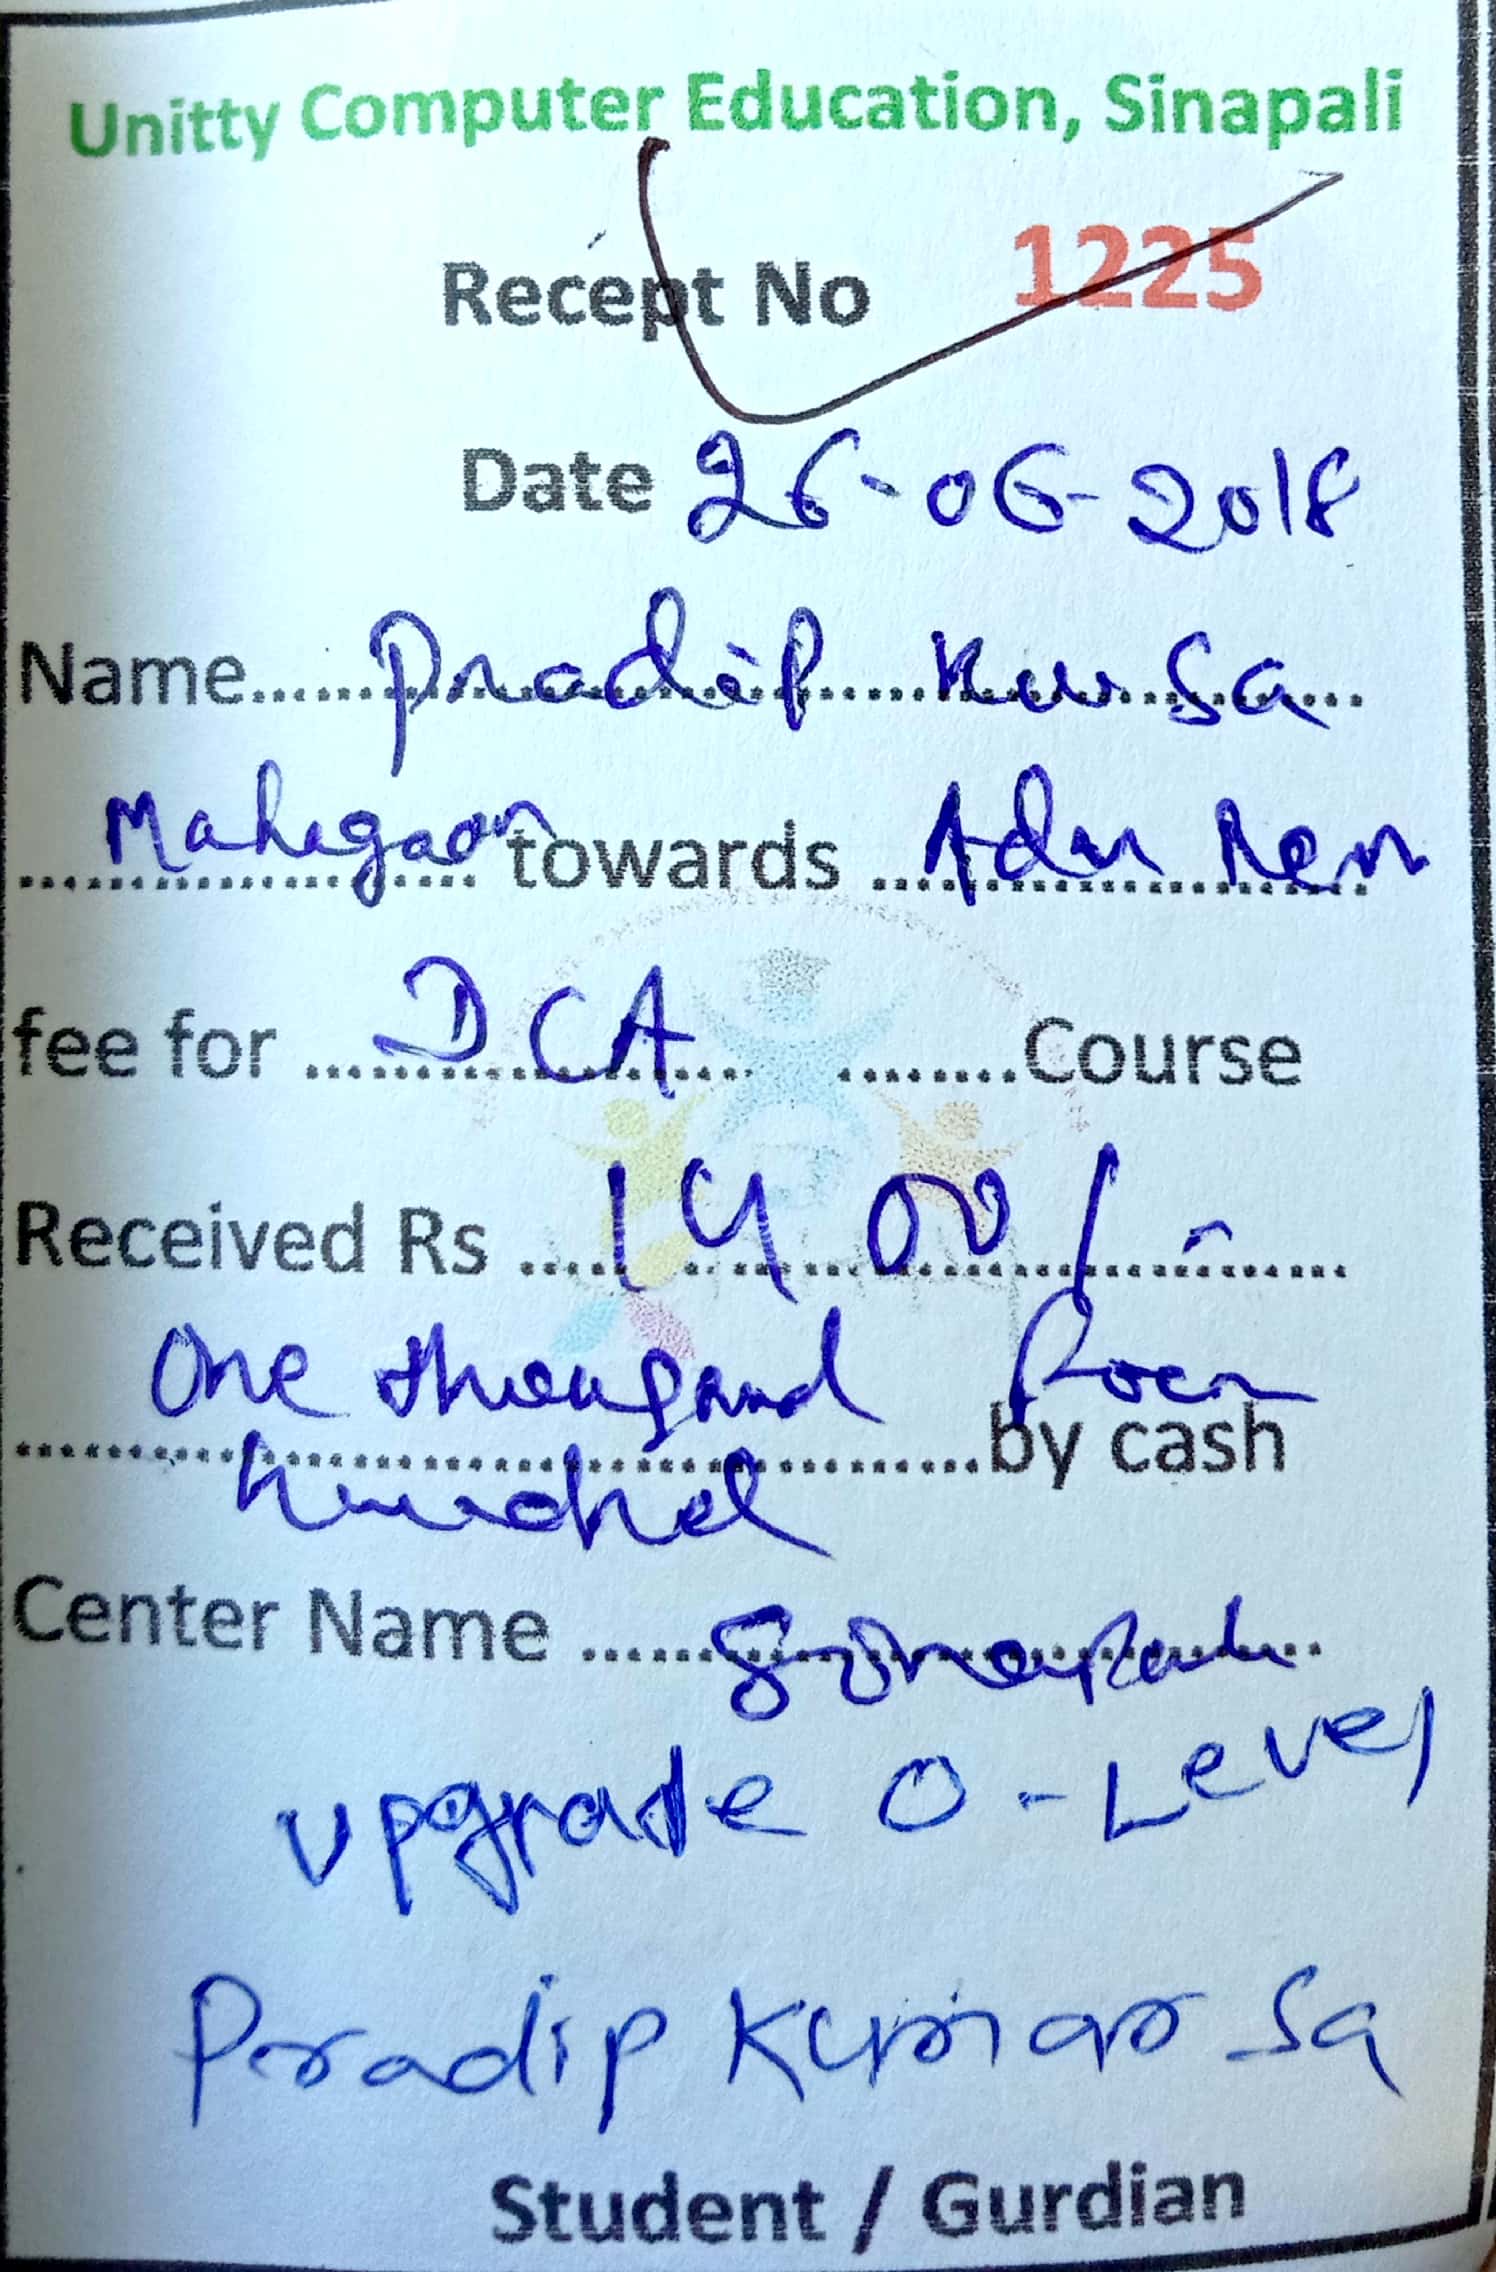 Unitty Computer Education, Sinapali
Recept No 1225
Date 26-06-2018
Name......Pradip Ku Sa
Mahagaon towards Adm
fee for ....DCA.... ........Course
Received Rs ....1400/-
One thousand Four
by cash
hundred
Center Name ......Sinapali
upgrade O-Level
Pradip Kumar Sa
Student / Gurdian